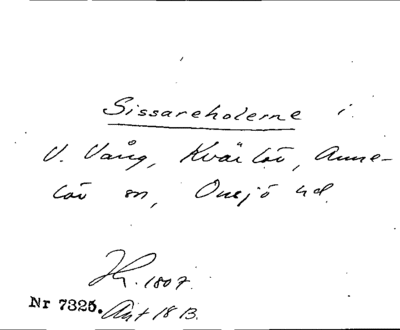 Sissareholerne i
V. Vång, Kvärlöv, Anne-
löv sn, Onsjö hd.
1807.
Nr 7325. Ant 18 B.